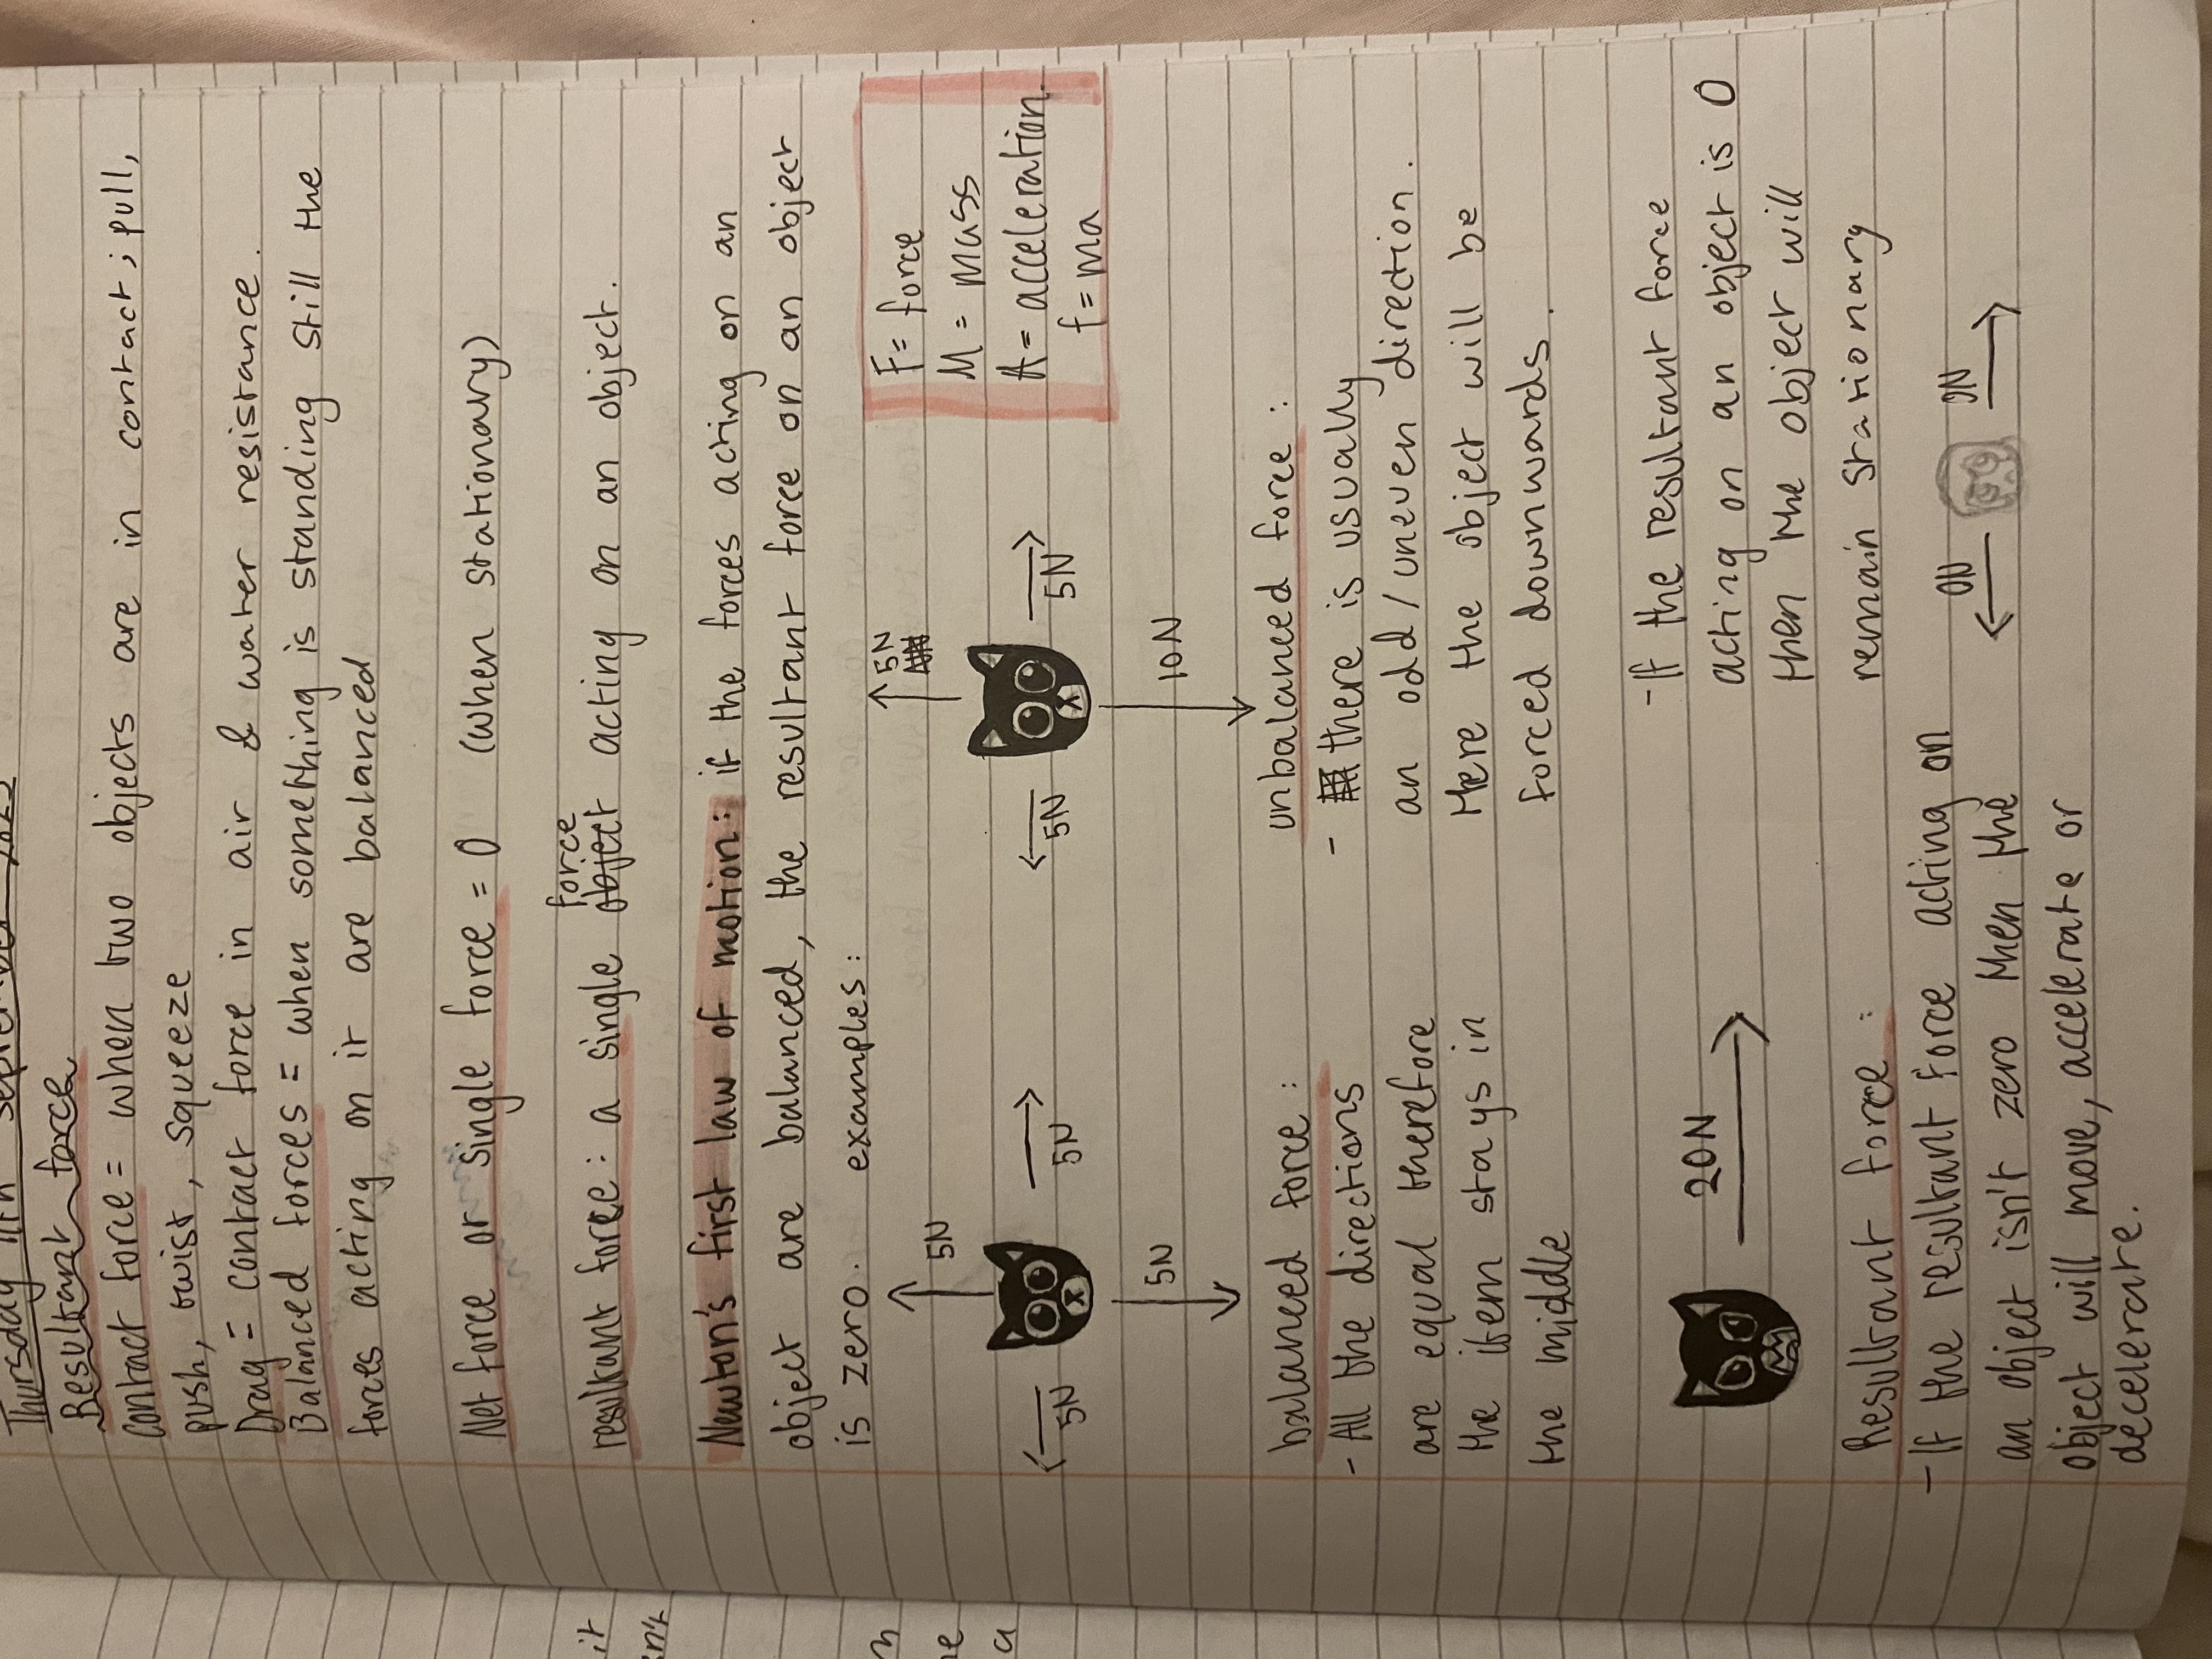 Thursday 11th September 2025
Resultant force
contact force = when two objects are in contact ; pull,
push, twist, squeeze
Drag = contact force in air & water resistance.
Balanced forces = when something is standing still the
forces acting on it are balanced
Net force or single force = 0 (when stationary)
force
resultant force : a single object acting on an object.
Newton's first law of motion: if the forces acting on an
object are balanced, the resultant force on an object
is zero. examples:
F = force
M = Mass
A = acceleration
f = ma
5N
5N
5N
5N
5N
5N
5N
10N
balanced force :
- All the directions
are equal therefore
the item stays in
the middle
unbalanced force :
- there is usually
an odd/uneven direction.
Here the object will be
forced downwards.
20N
Resultant force :
- If the resultant force acting on
an object isn't zero then the
object will move, accelerate or
decelerate.
- If the resultant force
acting on an object is 0
then the object will
remain stationary
0N
0N
it
sn't
a